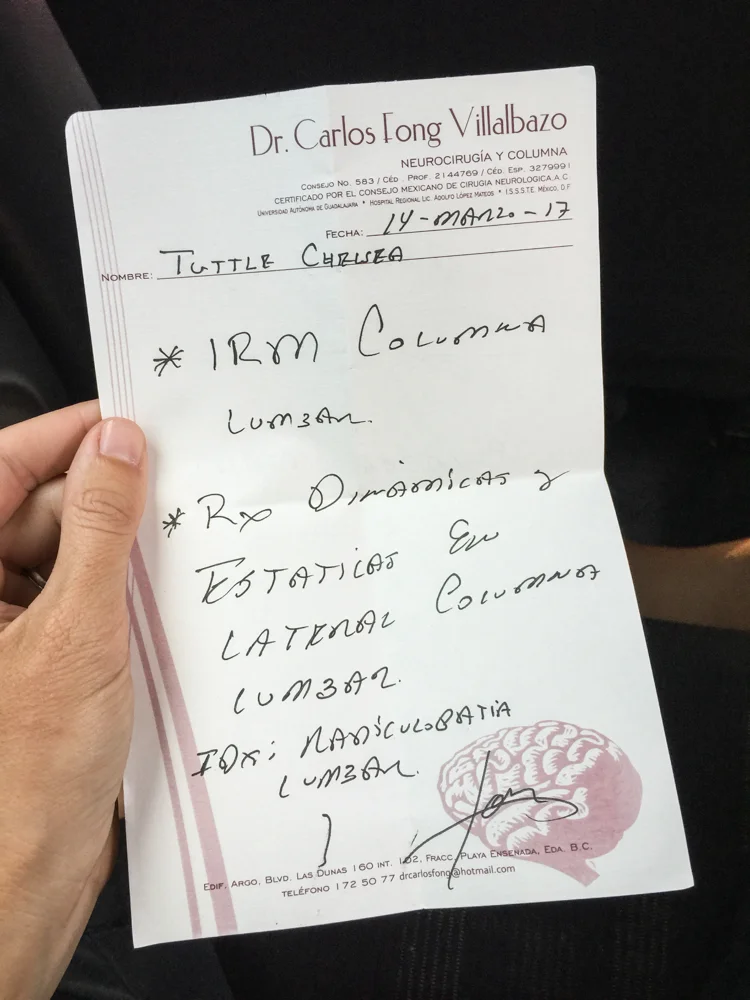 Dr. Carlos Fong Villalbazo
NEUROCIRUGÍA Y COLUMNA
CONSEJO NO. 583 / CÉD. PROF. 2144769 / CÉD. ESP. 3279991
CERTIFICADO POR EL CONSEJO MEXICANO DE CIRUGIA NEUROLOGICA, A.C.
UNIVERSIDAD AUTÓNOMA DE GUADALAJARA * HOSPITAL REGIONAL LIC. ADOLFO LÓPEZ MATEOS * I.S.S.S.T.E. MÉXICO, D.F
FECHA: 14-MARZO-17
NOMBRE: TUTTLE CHELSEA
* IRM COLUMNA
LUMBAR.
* Rx DINÁMICAS y
ESTATICAS EN
LATERAL COLUMNA
LUMBAR.
IDx: RADICULOPATIA
LUMBAR.
EDIF. ARGO, BLVD. LAS DUNAS 160 INT. 102, FRACC. PLAYA ENSENADA, EDA. B.C.
TELÉFONO 172 50 77 drcarlosfong@hotmail.com